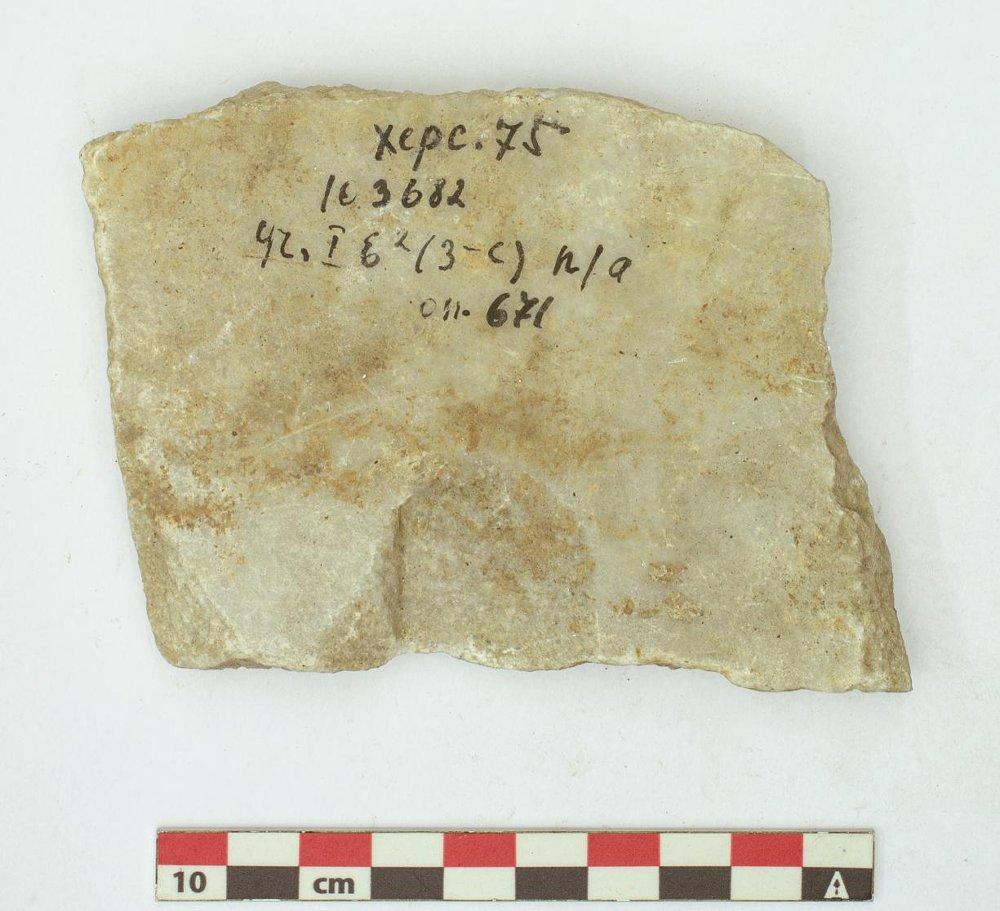 Херс. 75
103682
уч. I б² (3-С) п/а
оп. 671
10 cm
A